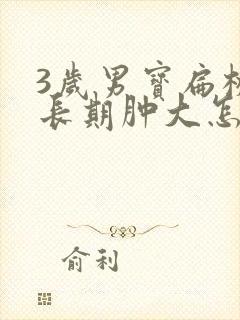 3歲男寶扁
長期肿大怎
俞利